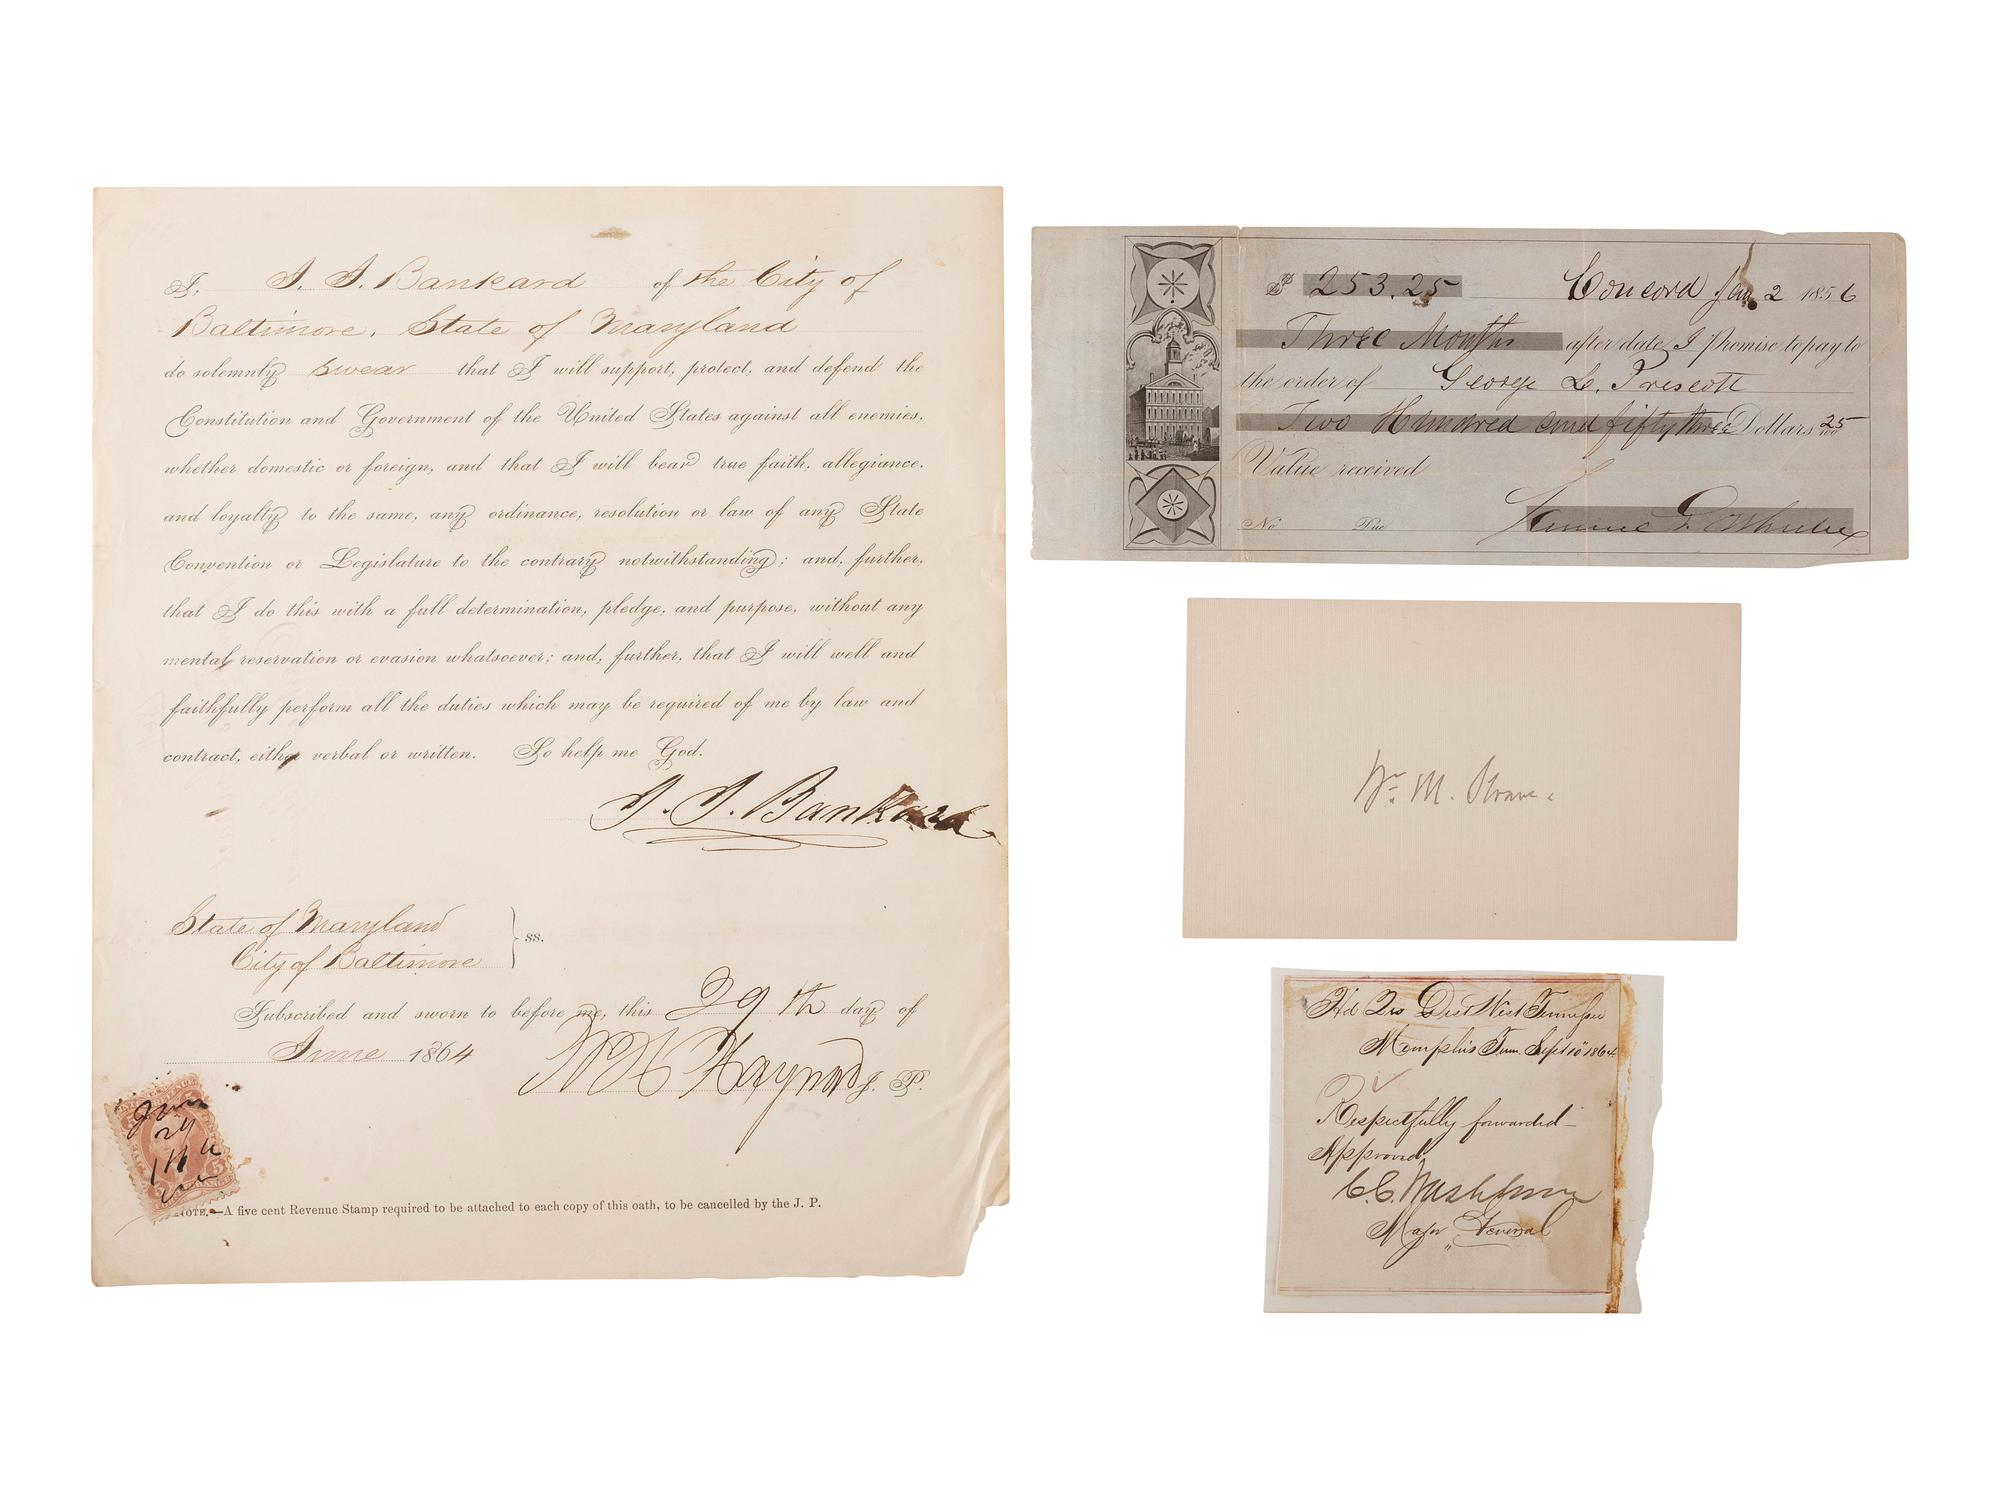 I, J. J. Bankard of the City of
Baltimore, State of Maryland
do solemnly swear that I will support, protect, and defend the
Constitution and Government of the United States against all enemies,
whether domestic or foreign, and that I will bear true faith, allegiance,
and loyalty to the same, any ordinance, resolution or law of any State
Convention or Legislature to the contrary notwithstanding; and, further,
that I do this with a full determination, pledge, and purpose, without any
mental reservation or evasion whatsoever; and, further, that I will well and
faithfully perform all the duties which may be required of me by law and
contract, either verbal or written. So help me God.
J. J. Bankard
State of Maryland
City of Baltimore } ss.
Subscribed and sworn to before me, this 29th day of
June 1864
J. P.
NOTE.—A five cent Revenue Stamp required to be attached to each copy of this oath, to be cancelled by the J. P.
$ 253.25 Concord Jan 2 1856
Three Months after date I Promise to pay to
the order of George L. Prescott
Two Hundred and fifty three Dollars 25/100
Value received
No Due
Wm. M.
Hd Qrs Dist West Tennessee
Memphis Tenn. Sept 10 1864
Respectfully forwarded—
Approved
C.C. Washburn
Major General